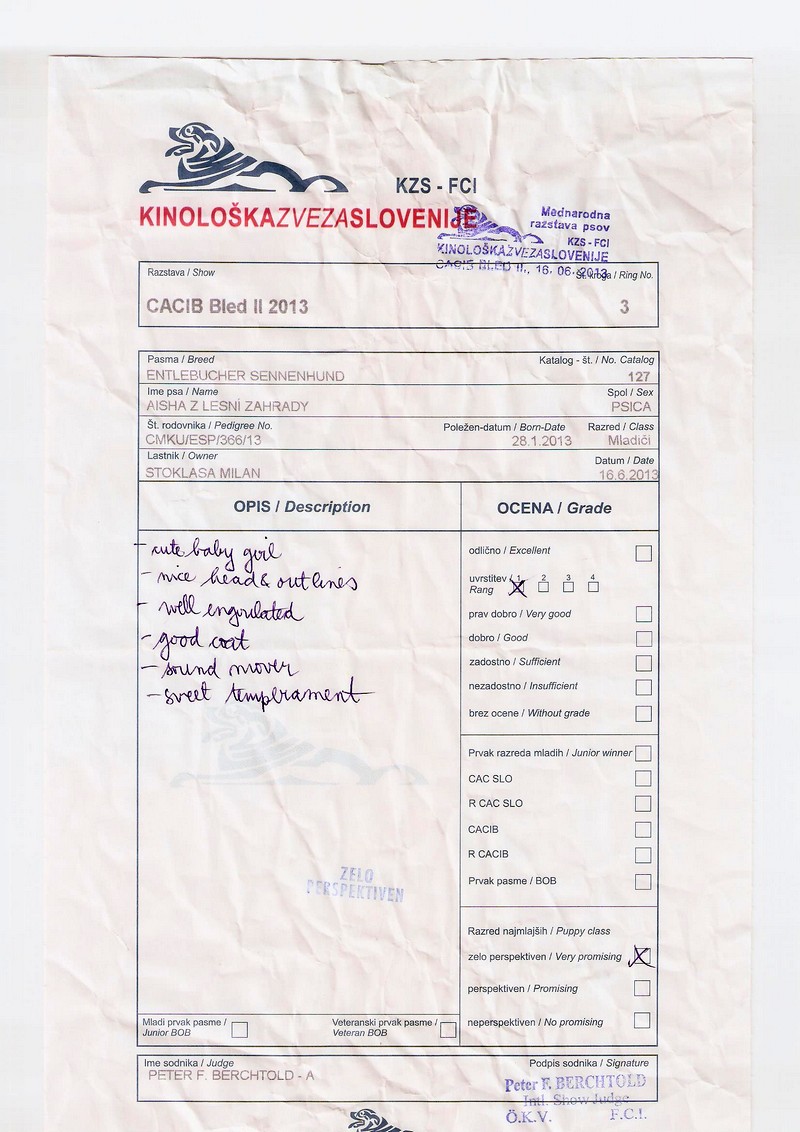 KZS - FCI
KINOLOŠKAZVEZASLOVENIJE
Mednarodna
razstava psov
KZS - FCI
KINOLOŠKAZVEZASLOVENIJE
CACIB BLED II., 16. 06. 2013
Razstava / Show
Št. kroga / Ring No.
CACIB Bled II 2013
3
Pasma / Breed
Katalog - št. / No. Catalog
ENTLEBUCHER SENNENHUND
127
Ime psa / Name
Spol / Sex
AISHA Z LESNÍ ZAHRADY
PSICA
Št. rodovnika / Pedigree No.
Poležen-datum / Born-Date
Razred / Class
CMKU/ESP/366/13
28.1.2013
Mladiči
Lastnik / Owner
Datum / Date
STOKLASA MILAN
16.6.2013
OPIS / Description
OCENA / Grade
- cute baby goil
- nice head & outlines
- well engulated
- good coat
- sound mover
- sveet temprament
odlično / Excellent
uvrstitev / 1 2 3 4
Rang
prav dobro / Very good
dobro / Good
zadostno / Sufficient
nezadostno / Insufficient
brez ocene / Without grade
Prvak razreda mladih / Junior winner
CAC SLO
R CAC SLO
CACIB
R CACIB
Prvak pasme / BOB
ZELO
PERSPEKTIVEN
Razred najmlajših / Puppy class
zelo perspektiven / Very promising
perspektiven / Promising
neperspektiven / No promising
Mladi prvak pasme /
Junior BOB
Veteranski prvak pasme /
Veteran BOB
Ime sodnika / Judge
Podpis sodnika / Signature
PETER F. BERCHTOLD - A
Peter F. BERCHTOLD
Intl. Show Judge
Ö.K.V. F.C.I.